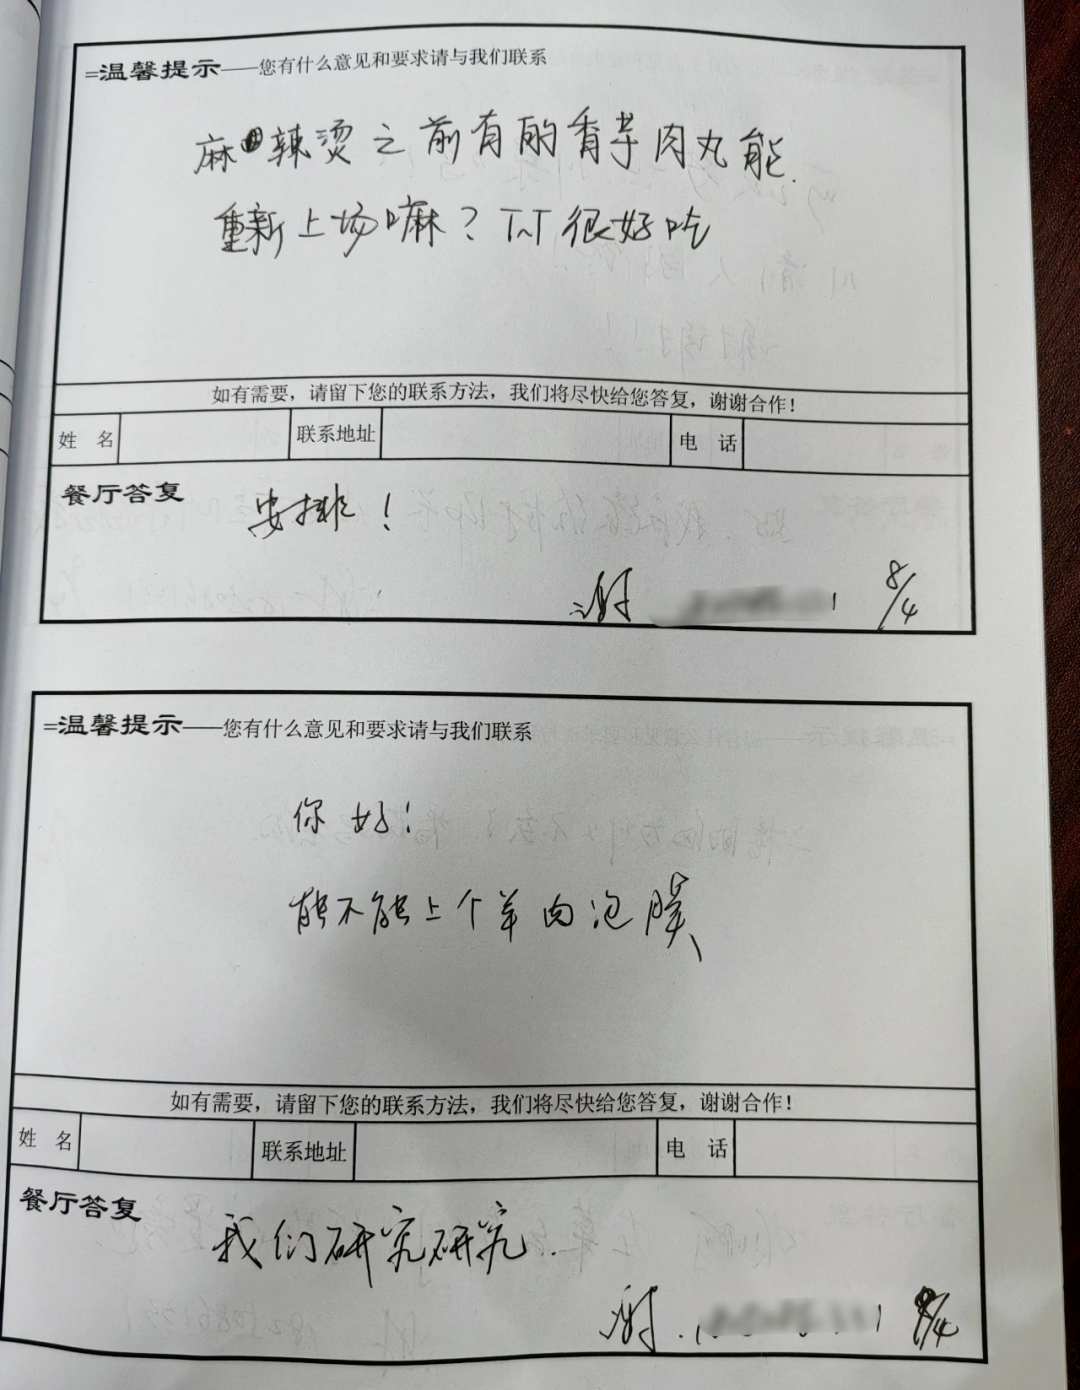 =温馨提示——您有什么意见和要求请与我们联系
麻辣烫之前有的香芋肉丸能
重新上场嘛？TNT很好吃
如有需要，请留下您的联系方法，我们将尽快给您答复，谢谢合作！
姓 名 联系地址 电 话
餐厅答复
安排！
谢 8/4
=温馨提示——您有什么意见和要求请与我们联系
你好！
能不能上个羊肉泡膜
如有需要，请留下您的联系方法，我们将尽快给您答复，谢谢合作！
姓 名 联系地址 电 话
餐厅答复
我们研究研究.
谢 8/4